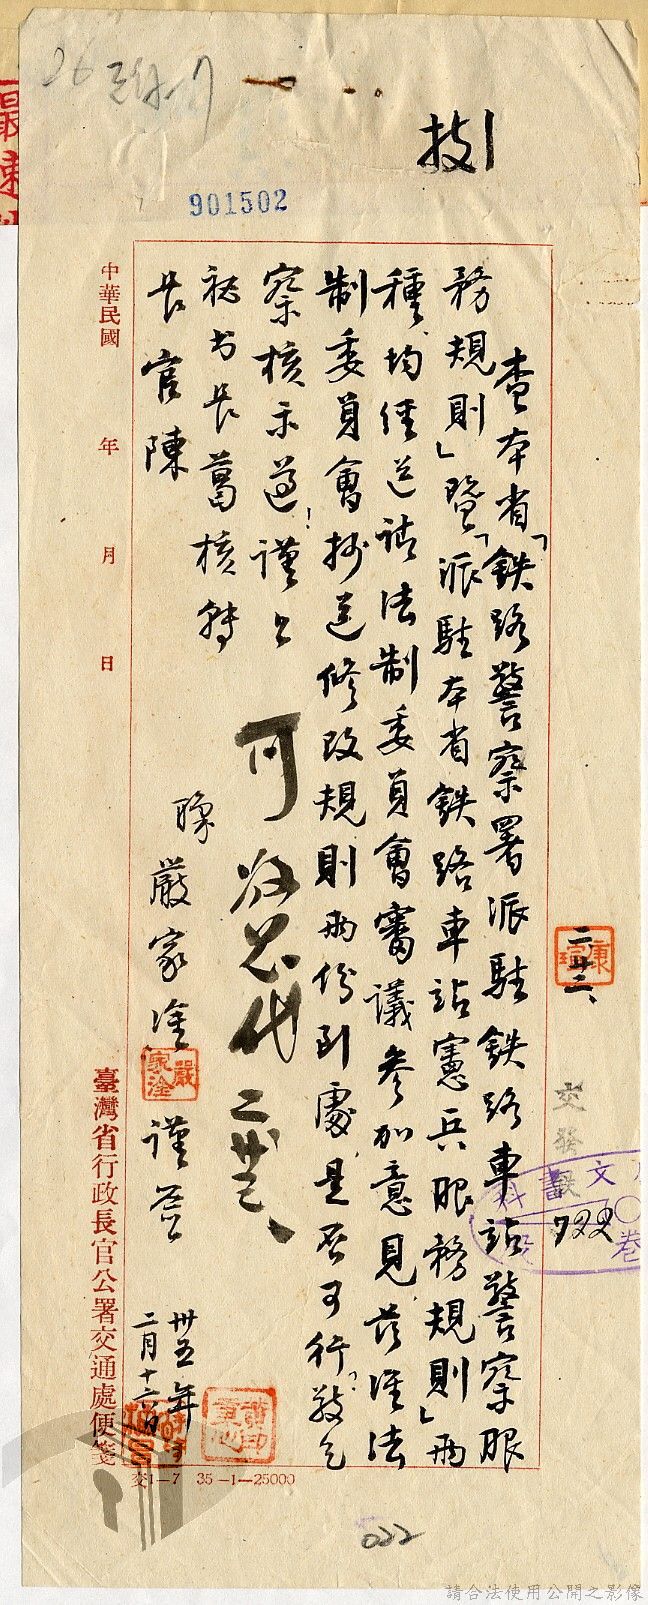 901502
查本省「鉄路警察署派駐鉄路車站警察服
務規則」暨「派駐本省鉄路車站憲兵服務規則」兩
種、均経送請法制委員會審議参加意見、茲准法
制委員會抄送修改規則兩份到處、是否可行、敬乞
察核示遵！謹上
秘书長葛核轉
長官陳
可
代
二廿三、
職嚴家淦
嚴家淦
謹簽
卅五年
二月十六日
中華民國 年 月 日
臺灣省行政長官公署交通處便箋
交1—7 35-1-25000
康
二廿三、
交
文書科
722
卷
022
請合法使用公開之影像